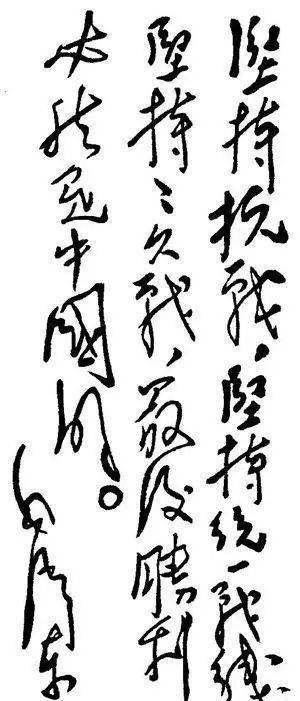 堅持抗戰、堅持統一戰綫
堅持〻久戰、最後勝利
必然是中國的。
毛澤東